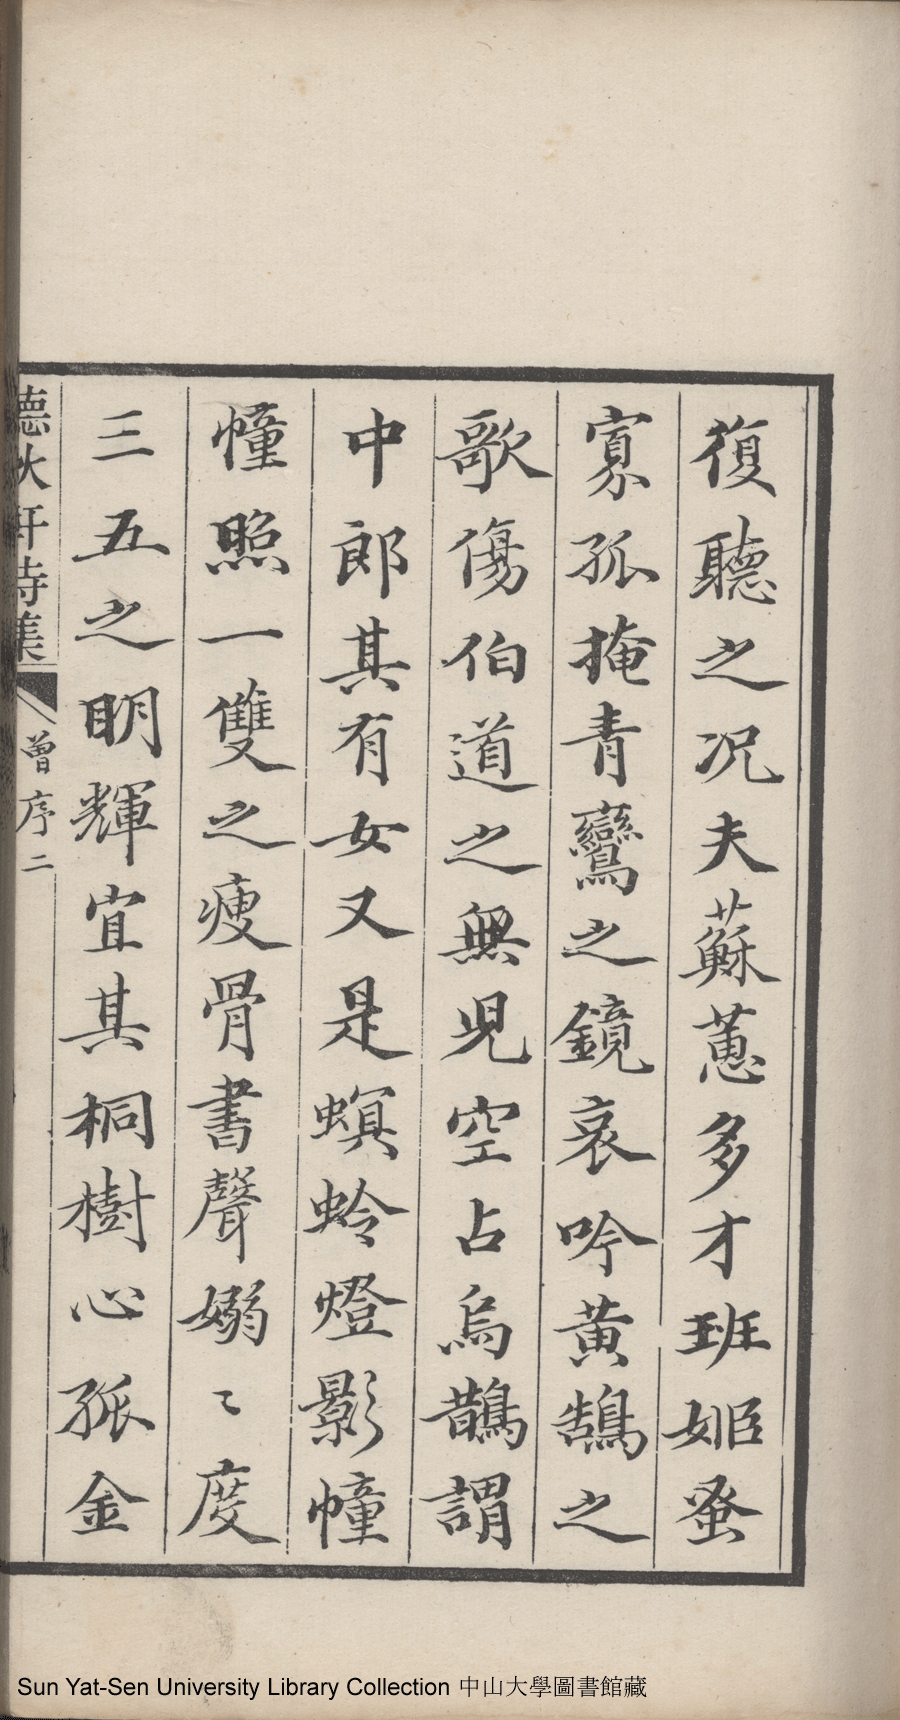 復聽之况夫蘇蕙多才班姬蚤
寡孤掩青鸞之鏡哀吟黃鵠之
歌傷伯道之無児空占烏鵲謂
中郎其有女又是螟蛉燈影幢
幢照一雙之瘦骨書聲嫋〻度
三五之明輝宜其桐樹心孤金
德水軒詩集
曾序二
Sun Yat-Sen University Library Collection 中山大學圖書館藏